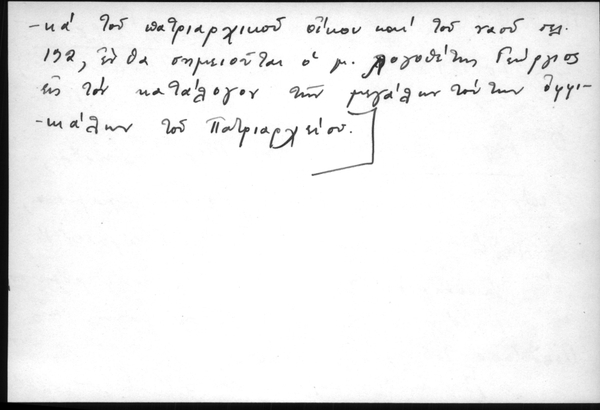 -κά τοῦ πατριαρχικοῦ οἴκου καί τοῦ ναοῦ σελ.
192, ἔνθα σημειοῦται ὁ μ. λογοθέτης Γεώργιος
εἰς τόν κατάλογον τῶν μεγάλων τούτων ὀφφι-
-κιάλων τοῦ Πατριαρχείου.]